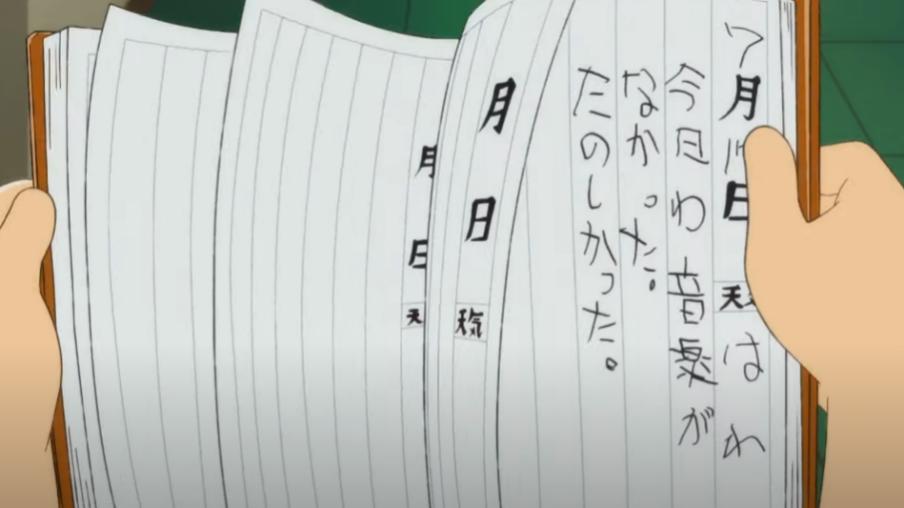 7月18日 天 はれ
今日わ音楽が
なかった。
たのしかった。
月 日 天気
月 日 天